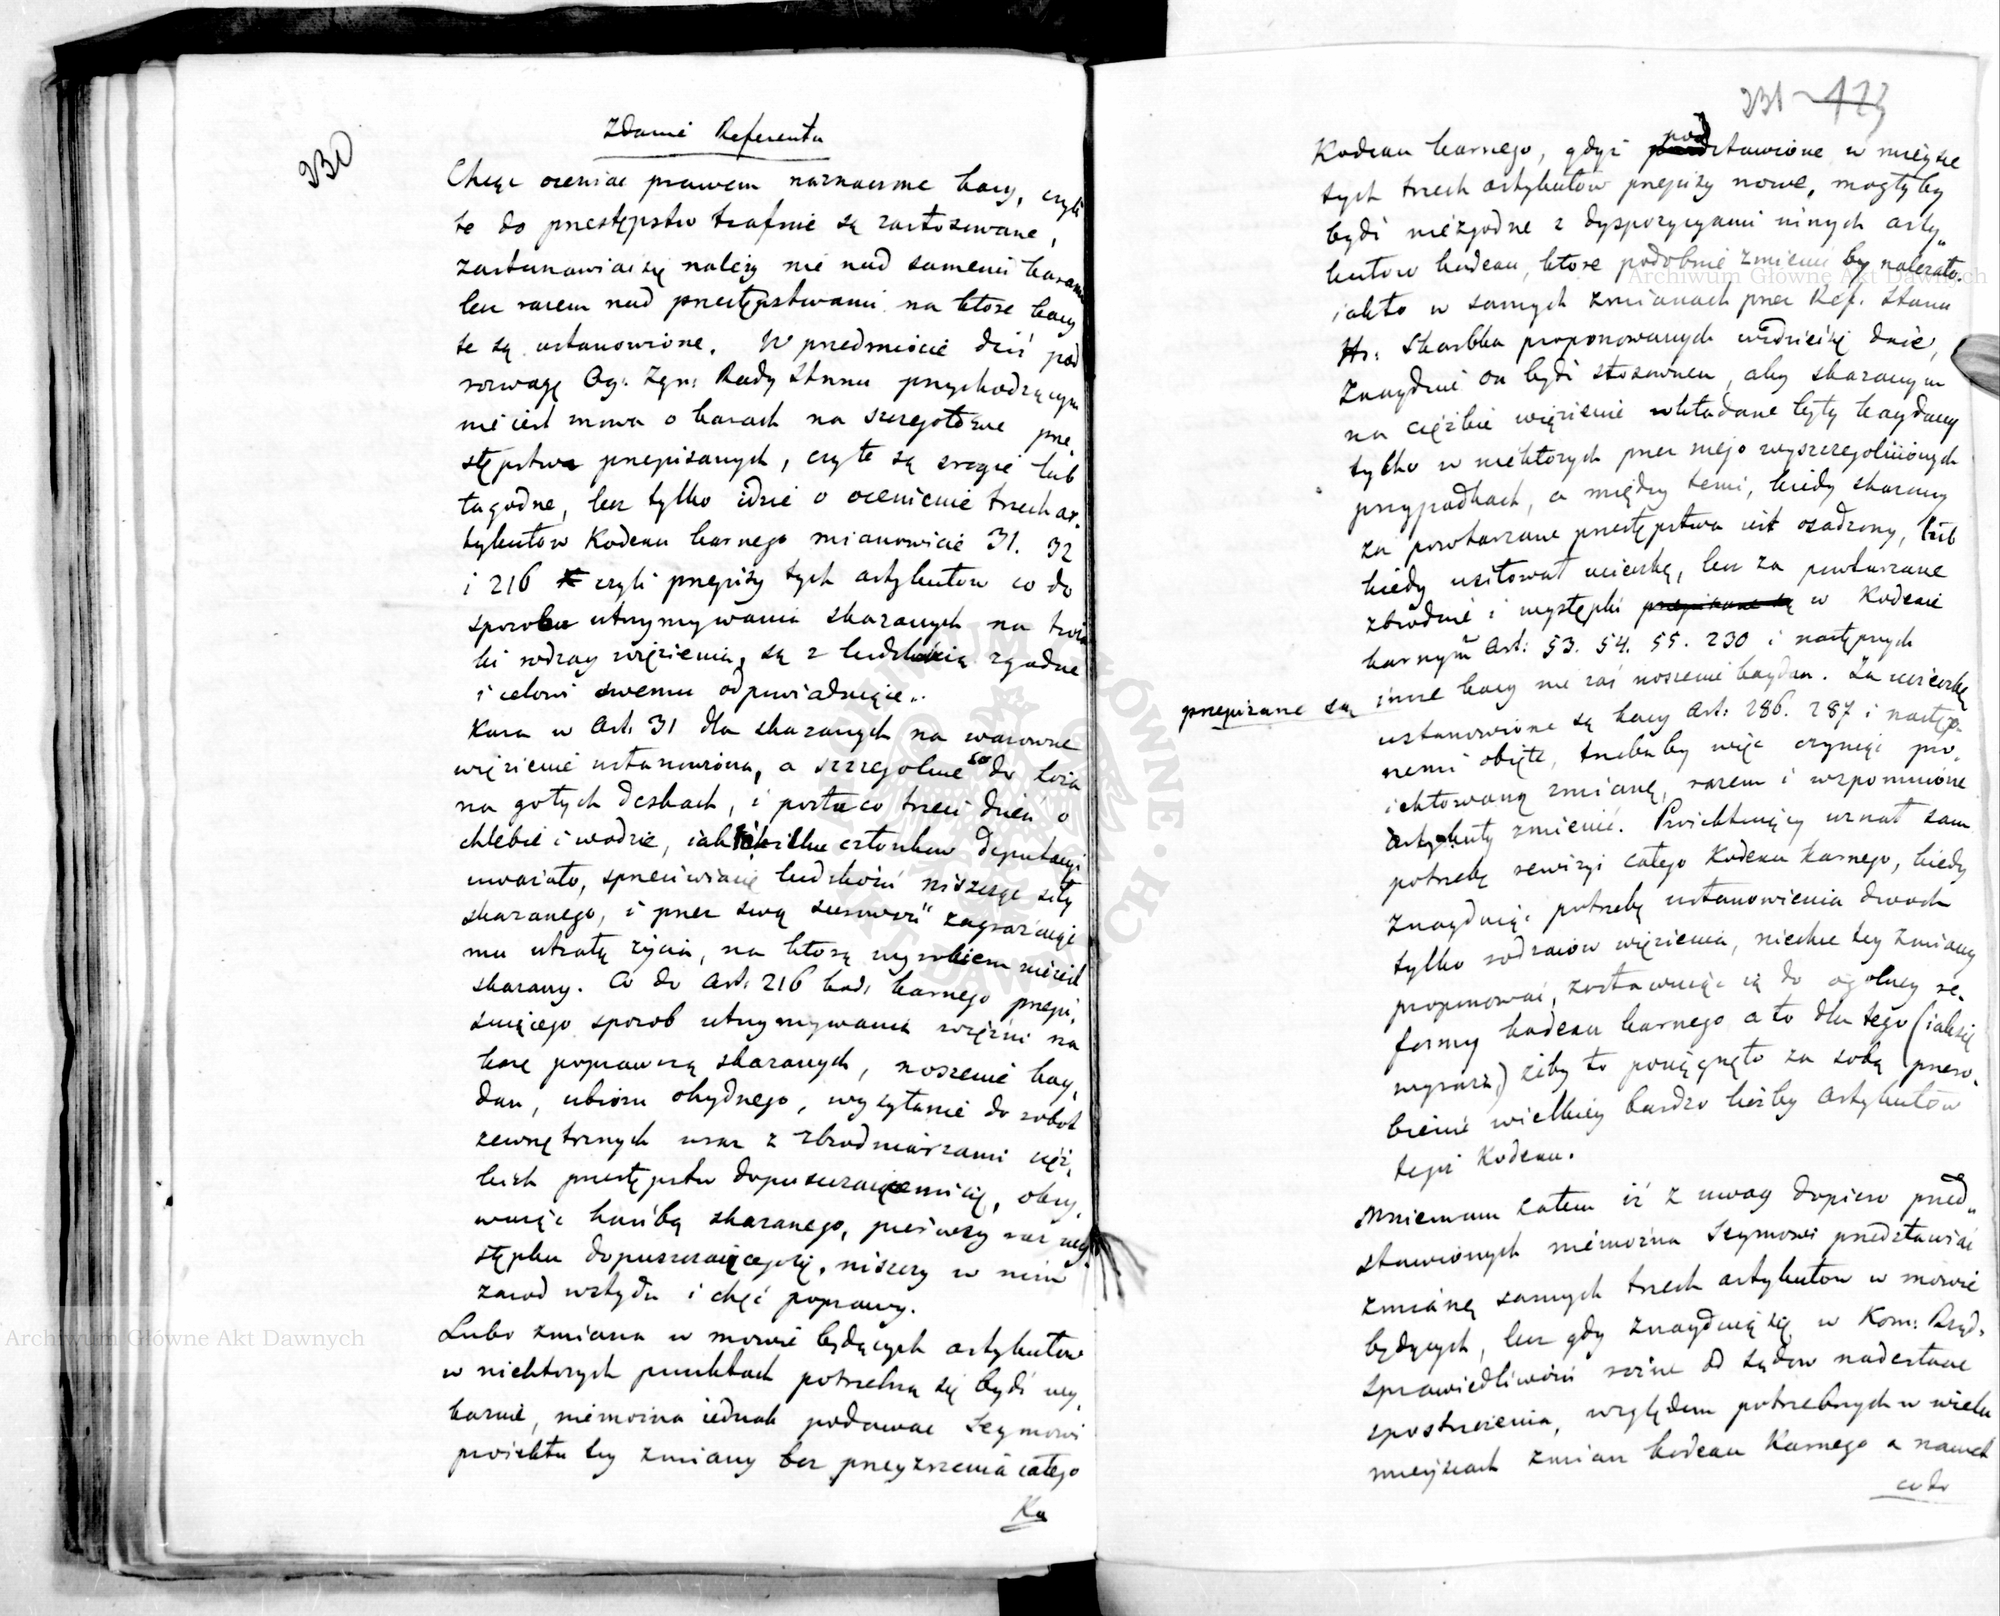 330
Zdanie Referenta
Chcąc oceniać prawem naznaczone kary, czyli
te do przestępstw trafnie są zastosowane,
zastanawiać się należy nie nad samemi karami
lecz razem nad przestępstwami na które kary
te są ustanowione. W przedmiocie dziś pod
rozwagę Og: Zgr: Rady Stanu przychodzącym
nie iest mowa o karach na szczegółowe prze
stępstwa przepisanych, czy te są srogie lub
łagodne, lecz tylko idzie o ocenienie trzech ar,
tykułów Kodexu karnego mianowicie 31. 32
i 216 czyli przepisy tych artykułów co do
sposobu utrzymywania skazanych na troia
ki rodzay więzienia, są z ludzkością zgodne
i celowi swemu odpowiadaiące.
Kara w Art: 31 dla skazanych na warowne
więzienie ustanowiona, a szczególnie co do łoża
na gołych deskach, i postu co trzeci dzień o
chlebie i wodzie, iak kilku członków Deputacyi
uważało, sprzeciwia się ludzkości niszcząc siły
skazanego, i przez swą surowość zagrażaiąc
mu utratę życia, na którą wyrokiem nie iest
skazany. Co do Art: 216 kod: karnego przepi,
suiącego sposób utrzymywania więźni na
karę poprawczą skazanych, noszenie kay,
dan, ubioru ohydnego, wysyłanie do robot
zewnętrznych wraz z zbrodniarzami cięż,
kich przestępstw dopuszczaiącemi się, okry,
waiąc hańbą skazanego, pierwszy raz wy
stępku dopuszczaiącego się, niszczy w nim
zaród wstydu i chęć poprawy.
Lubo zmiana w mowie będących artykułów
w niektorych punktach potrzebną się być wy,
kazuie, niemożna iednak podawać Seymowi
proiektu tey zmiany bez przeyrzenia całego
Ko
331 - 173
Kodexu karnego, gdyż podstawione w mieysce
tych trzech artykułów przepisy nowe, mogłyby
bydź niezgodne z dyspozycyami innych arty„
kułów kodexu, ktore podobnie zmienić by należało.
iakto w samych zmianach przez Ref: Stanu
Hr: Skarbka proponowanych widzieć się daie,
Znayduie on bydź stosownem, aby skazanym
na ciężkie więzienie wkładane były kaydany
tylko w niektorych przez niego wyszczególnionych
przypadkach, a między temi, kiedy skazany
za powtarzane przestępstwa iest osadzony, lub
kiedy usiłował ucieczkę, lecz za powtarzane
zbrodnie i występki przepisane są w Kodexie
karnym Art: 53. 54. 55. 230 i następnych
przepisane są
inne kary nie zaś noszenie kaydan. Za ucieczkę
ustanowione są kary Art: 286. 287 i następ„
nemi obięte, trzeba by więc czyniąc pro„
iektowaną zmianę, razem i wspomnione
artykuły zmienić. Proiektuiący uznał sam
potrzebę rewizyi całego Kodexu karnego, kiedy
znayduiąc potrzebę ustanowienia dwoch
tylko rodzaiow więzienia, niechce tey zmiany
proponować, zostawuiąc ią do ogolney re„
formy kodexu karnego a to dla tego (iak się
wyraża) żeby to pociągnęło za sobą przero„
bienie wielkiey bardzo liczby artykułów
tegoż Kodexu.
Mniemam zatem iż z uwag dopiero przed„
stawionych niemożna Seymowi przedstawiać
zmianę samych trzech artykułów w mowie
będących, lecz gdy znayduią się w Kom: Rząd:
Sprawiedliwości rożne od sądow nadesłane
spostrzeżenia, względem potrzebnych w wielu
mieyscach zmian kodexu Karnego a nawet
co do
Archiwum Główne Akt Dawnych
Archiwum Główne Akt Dawnych